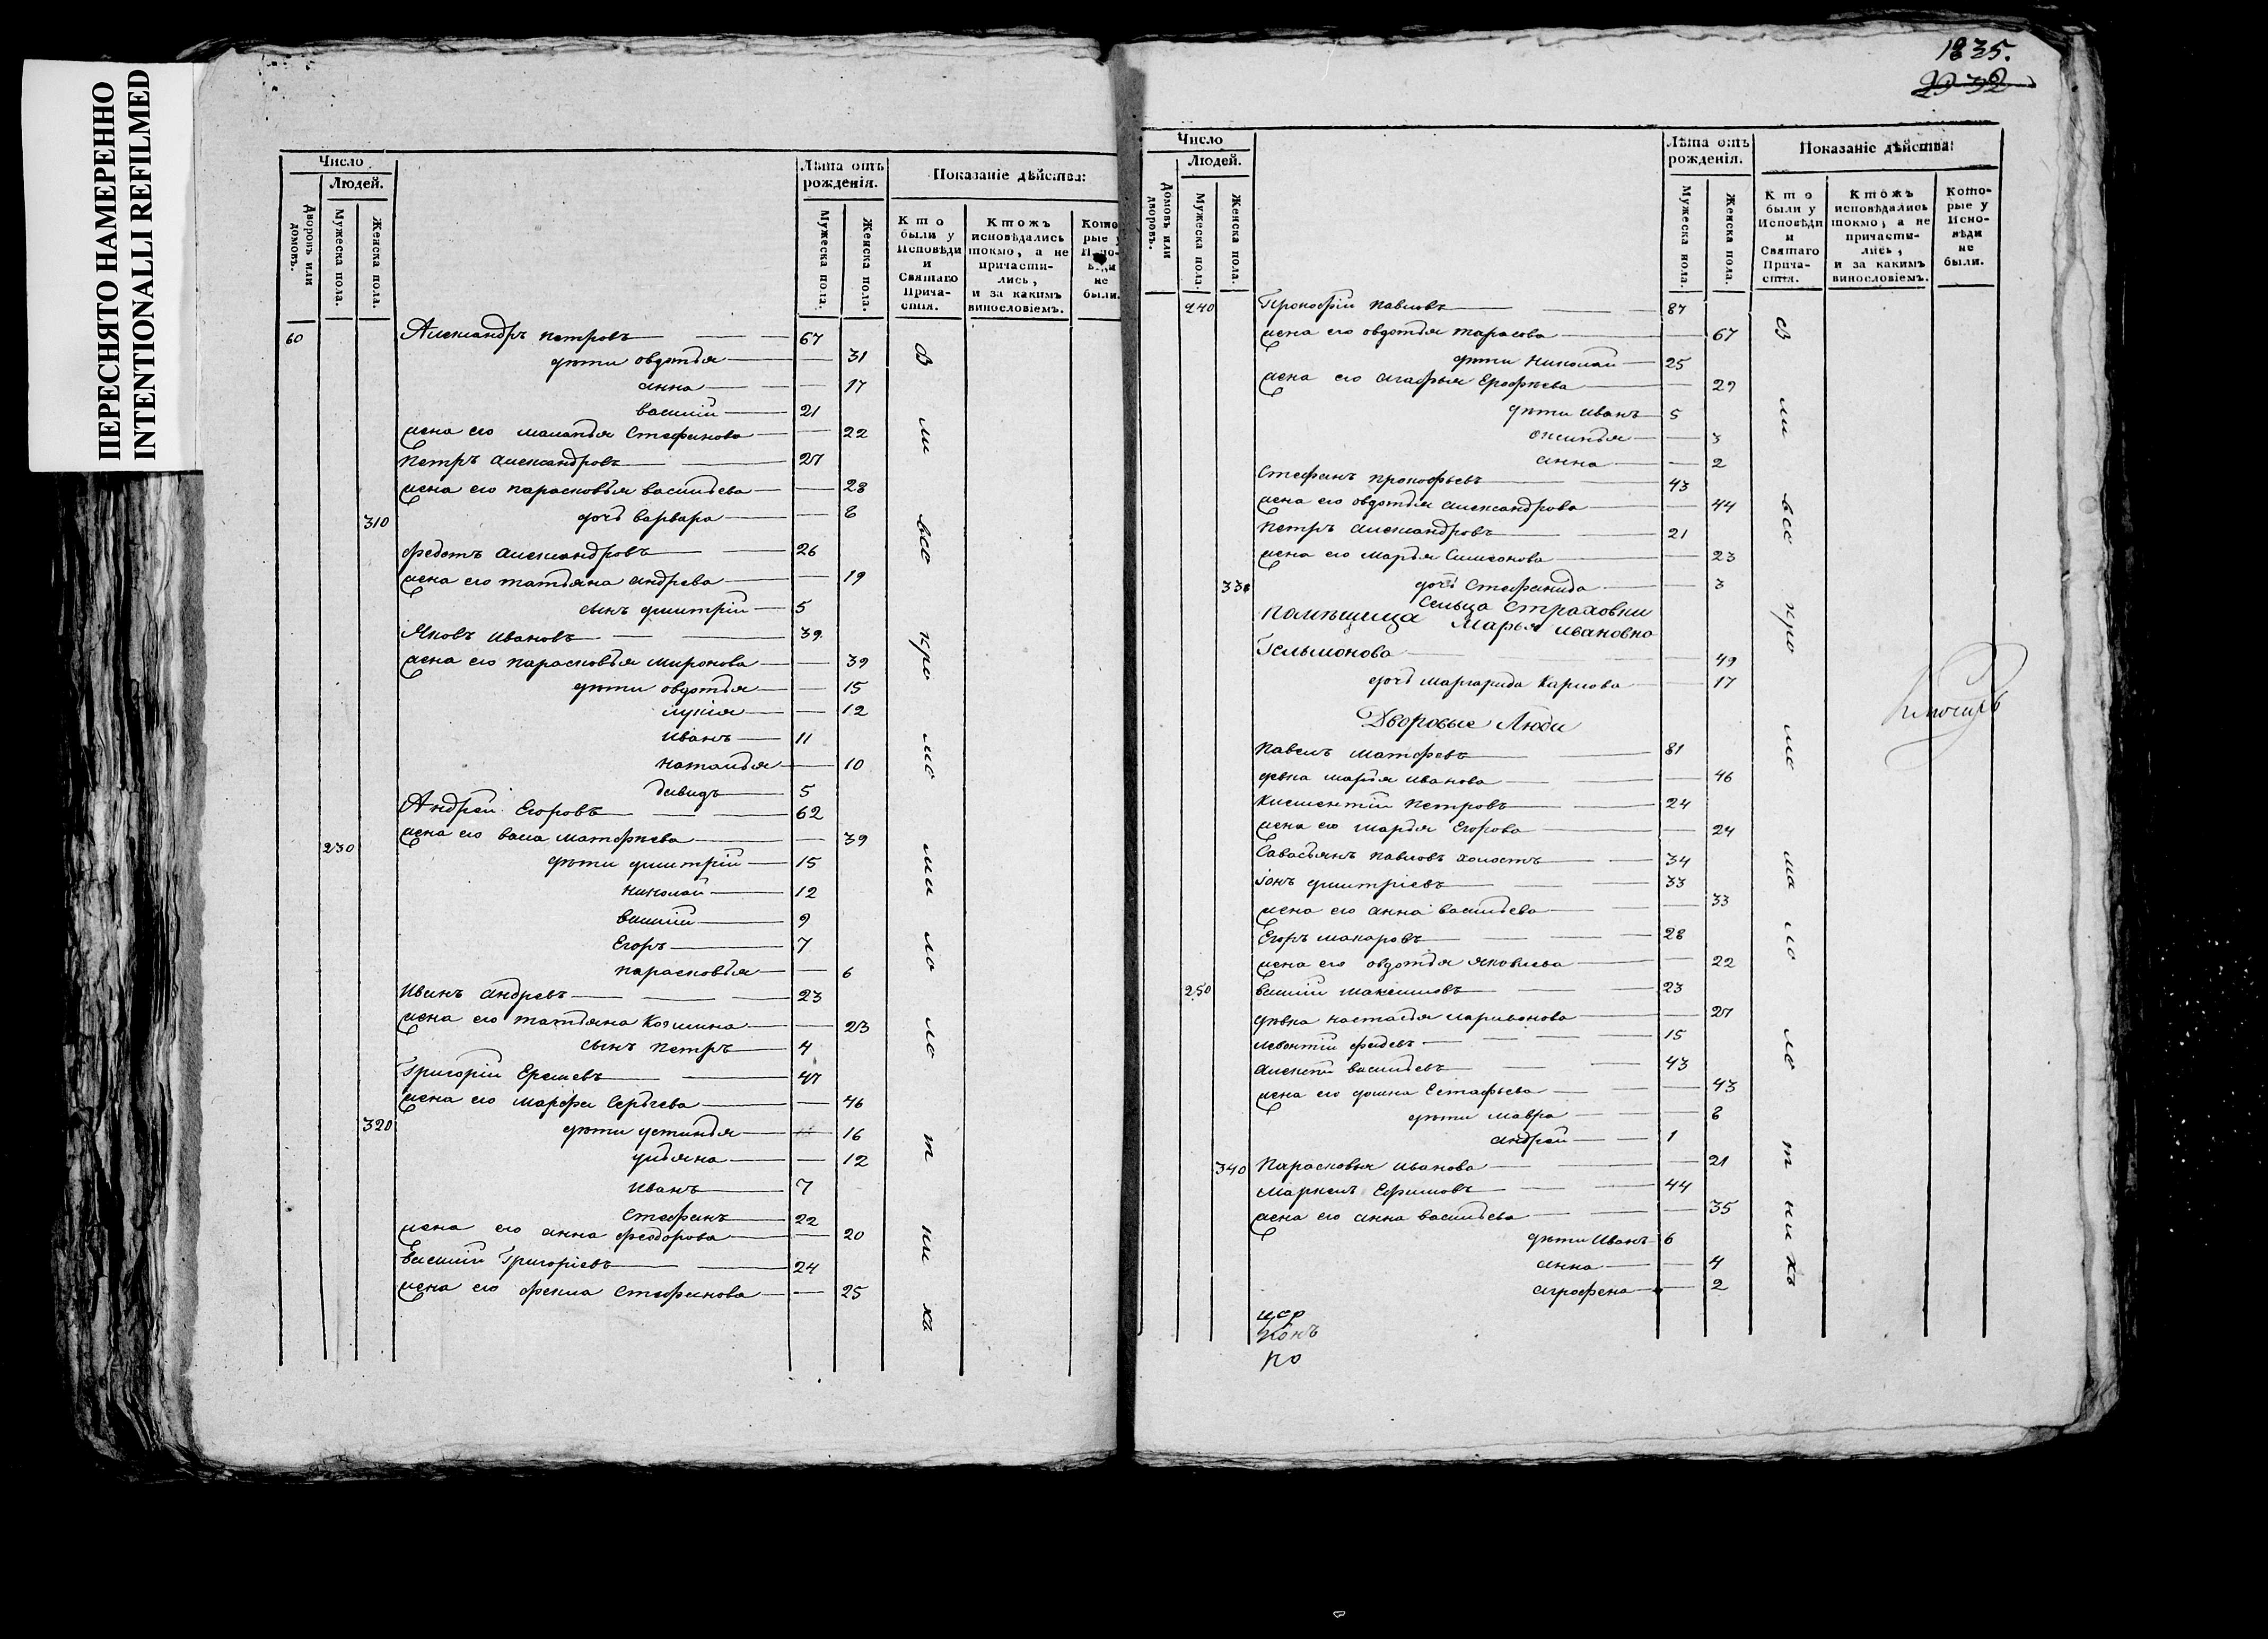 ПЕРЕСНЯТО НАМЕРЕННО
INTENTIONALLI REFILMED
Число
Людей.
Дворовъ или домовъ.
Мужеска пола.
Женска пола.
Лѣта отъ рожденія.
Мужеска пола.
Женска пола.
Показаніе дѣйства:
Кто были у Исповѣди и Святаго Прича-стія.
Ктожъ исповѣдались токмо, а не причасти-лись, и за какимъ винословіемъ.
Кото рые у Испо-вѣди не были.
60 Александръ Петровъ 67
дѣти овдотья 31
анна 17
василій 21
жена его маланья Стефанова 22
Петръ александровъ 27
жена его парасковья васильева 28
310 дочь варвара 8
федотъ александровъ 26
жена его татьяна андреева 19
сынъ димитрій 5
Яковъ ивановъ 39
жена его парасковья миронова 39
дѣти овдотья 15
лукія 12
иванъ 11
наталья 10
давидъ 5
Андрей Егоровъ 62
230 жена его васа матофеева 39
дѣти димитрій 15
николай 12
василій 9
Егоръ 7
парасковья 6
Иванъ андреевъ 23
жена его татьяна 23
сынъ петръ 4
Григорій 47
жена его марфа Сергеева 46
320 дѣти устинья 16
ульяна 12
иванъ 7
стефанъ 22
жена его анна феодорова 20
василій Григоріевъ 24
жена его фекла стефанова 25
В ли все кро ме ма ло ле т ни хъ
1835.
Число
Людей.
Домовъ или дворовъ.
Мужеска пола.
Женска пола.
Лѣта отъ рожденія.
Мужеска пола.
Женска пола.
Показаніе дѣйства:
Кто были у Исповѣди и Святаго Прича-стія.
Ктожъ исповѣдались токмо, а не причасти-лись, и за какимъ винословіемъ.
Кото-рые у Испо-вѣди не были.
240 Прокофій павловъ 87
жена его овдотья тарасова 67
дѣти Николай 25
жена его агафья Ерофеева 29
дѣти иванъ 5
аксинья 3
анна 2
Стефанъ прокофьевъ 43
жена его овдотья александрова 44
петръ александровъ 21
жена его марья Симеонова 23
330 дочь Стефанида 3
Сельца Страховки
Помѣщица Марья Ивановна
Гельмонова 49
дочь Маргарида Карлова 17
Дворовые Люди
павелъ матофевъ 81
девка марья иванова 46
климентій петровъ 24
жена его марья Егорова 24
Савастьянъ павловъ холостъ 34
іонъ димитріевъ 33
жена его анна васильева 33
Егоръ макаровъ 28
жена его овдотья яковлева 22
250 василій максимовъ 23
дѣвка настасья ларивонова 27
левонтій 15
алексей васильевъ 43
жена его домна Естафьева 43
дѣти мавра 8
андрей 1
340 Парасковья иванова 21
маркелъ Ефимовъ 44
жена его анна васильева 35
дѣти иванъ 6
анна 4
аграфена 2
ли все кро ме ма ло ле т ни хъ
Ключарь
цер
конъ
по